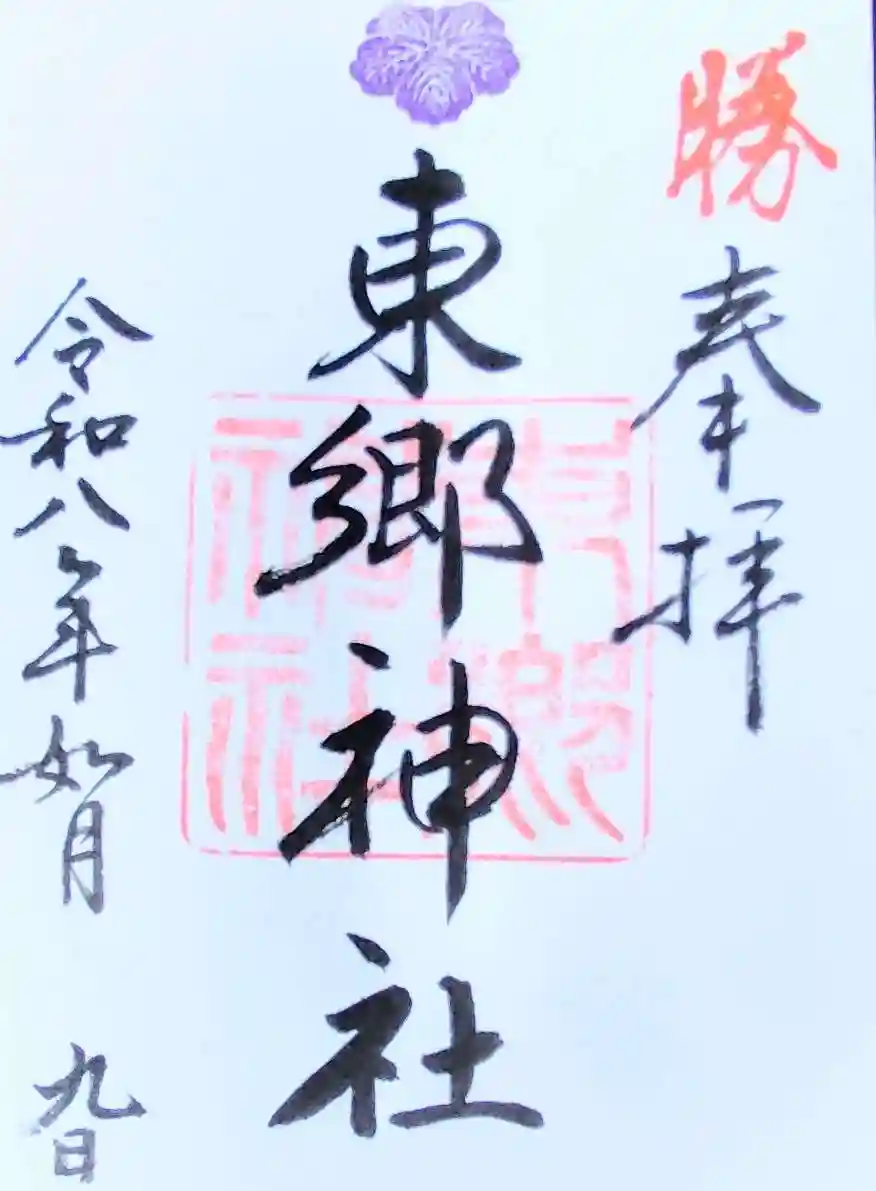 勝
奉拝
東郷神社
東郷神社
令和八年如月九日